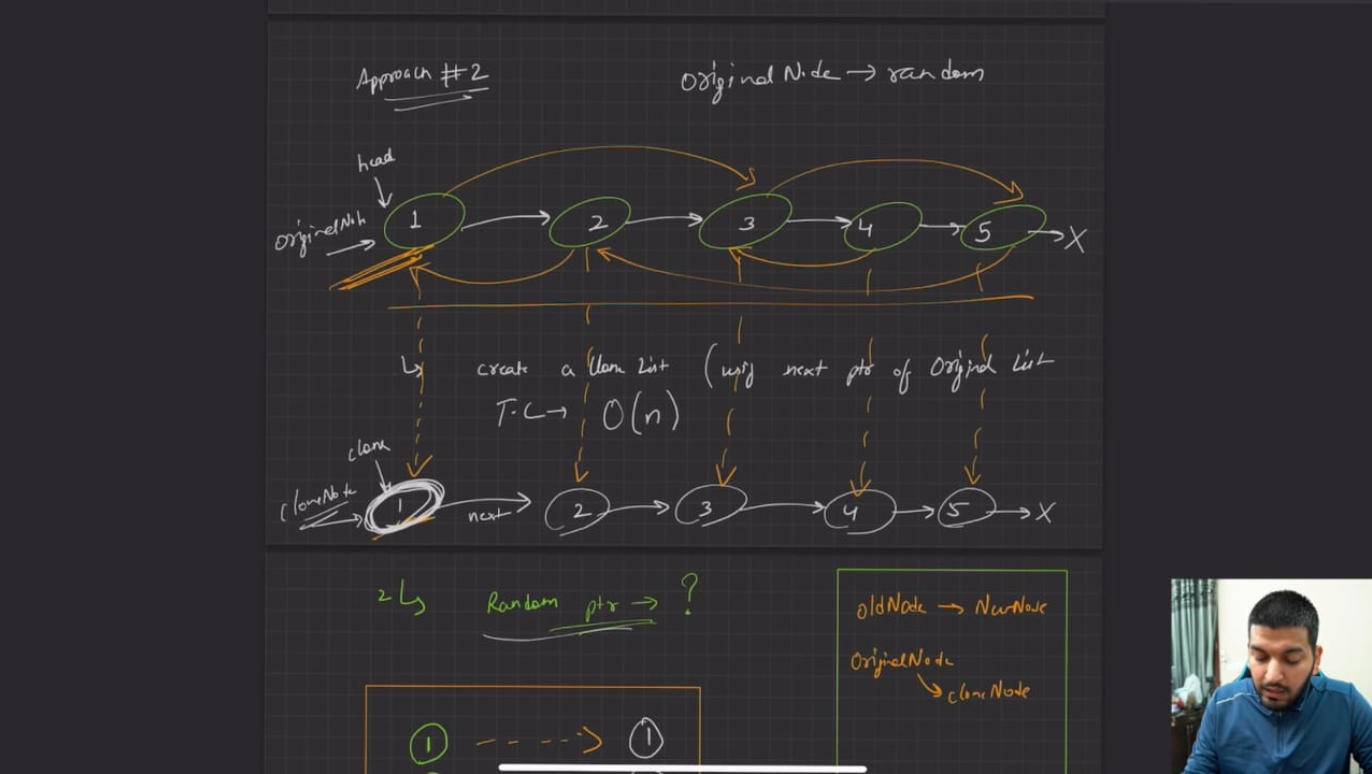 Approach #2
OriginalNode → random
head
OriginalNode
1 → 2 → 3 → 4 → 5 → X
↳ create a Clone List (using next ptr of Original List
T.C → O(n)
clone
cloneNode
1 next → 2 → 3 → 4 → 5 → X
2↳ Random ptr → ?
oldNode → NewNode
OriginalNode
↘ cloneNode
1 ----> 1